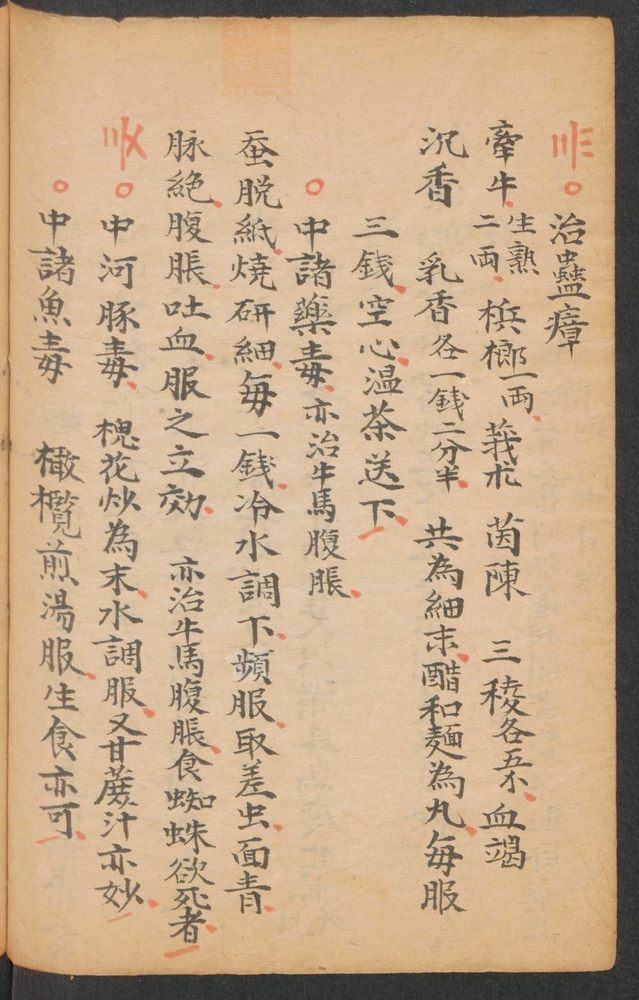 治蠱瘴
牽牛生熟二両 梹榔一両 莪朮 茵陳 三稜各五木 血竭
沉香 乳香各一錢二分半 共為細末醋和麺為丸每服
三錢空心温茶送下
中諸藥毒 亦治牛馬腹脹
蚕脱紙燒研細每一錢冷水調下頻服取差虫面青
脉絶腹脹吐血服之立効 亦治牛馬腹脹食蜘蛛欲死者
中河豚毒 槐花炒為末水調服又甘蔗汁亦妙
中諸魚毒 橄欖煎湯服生食亦可